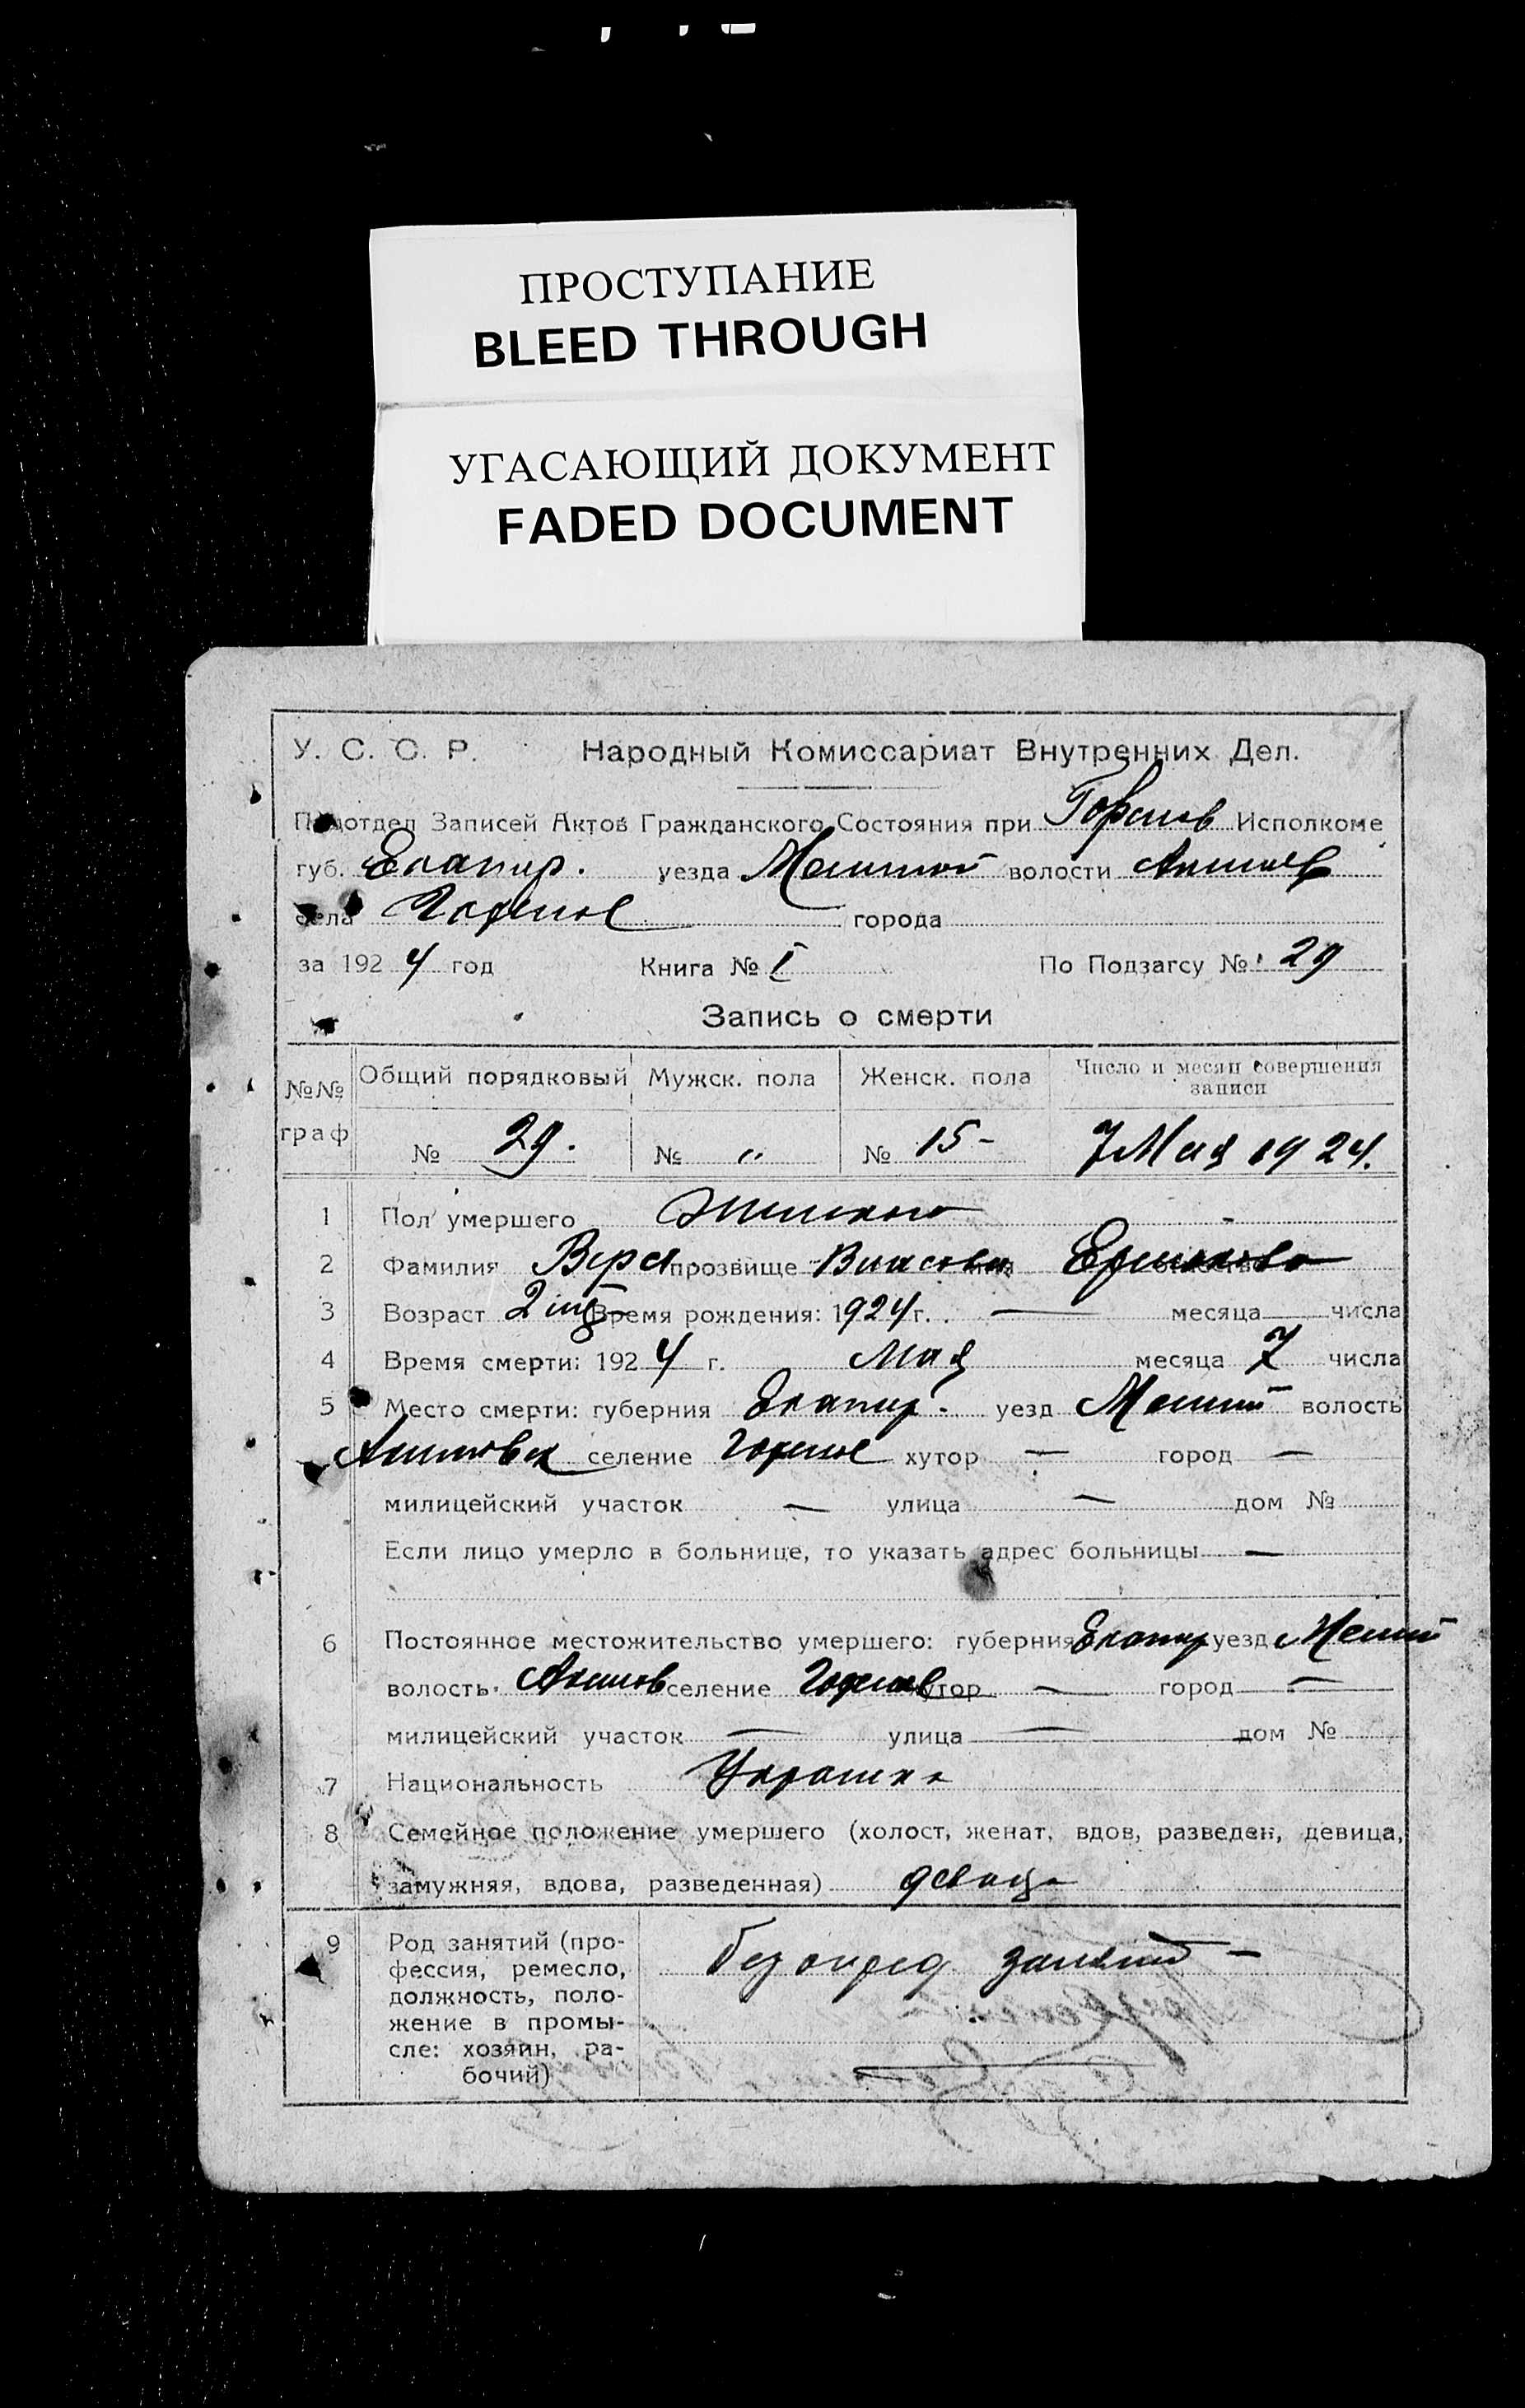 ПРОСТУПАНИЕ
BLEED THROUGH
УГАСАЮЩИЙ ДОКУМЕНТ
FADED DOCUMENT
У. С. С. Р. Народный Комиссариат Внутренних Дел.
Подотдел Записей Актов Гражданского Состояния при Исполкоме
губ. Екатер. уезда волости
села города
за 1924 год Книга № I По Подзагсу № 29
Запись о смерти
№№ граф Общий порядковый Мужск. пола Женск. пола Число и месяц совершения записи
№ 29. № „ № 15 – 7 Мая 1924.
1 Пол умершего женского
2 Фамилия Вера прозвище Власовна Ермакова
3 Возраст Время рождения: 1924 г. — месяца числа
4 Время смерти: 1924 г. Мая месяца 7 числа
5 Место смерти: губерния Екатер. уезд волость
Акимовск селение хутор — город —
милицейский участок — улица — дом №
Если лицо умерло в больнице, то указать адрес больницы —
6 Постоянное местожительство умершего: губерния Екатер уезд
волость Акимов селение хутор — город —
милицейский участок — улица — дом №
7 Национальность
8 Семейное положение умершего (холост, женат, вдов, разведен, девица,
замужняя, вдова, разведенная) девица
9 Род занятий (про-
фессия, ремесло,
должность, поло-
жение в промы-
сле: хозяин, ра-
бочий)
без опред занятий –